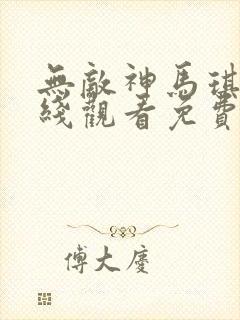 無敵神馬琪
綫觀看免費
傅大慶